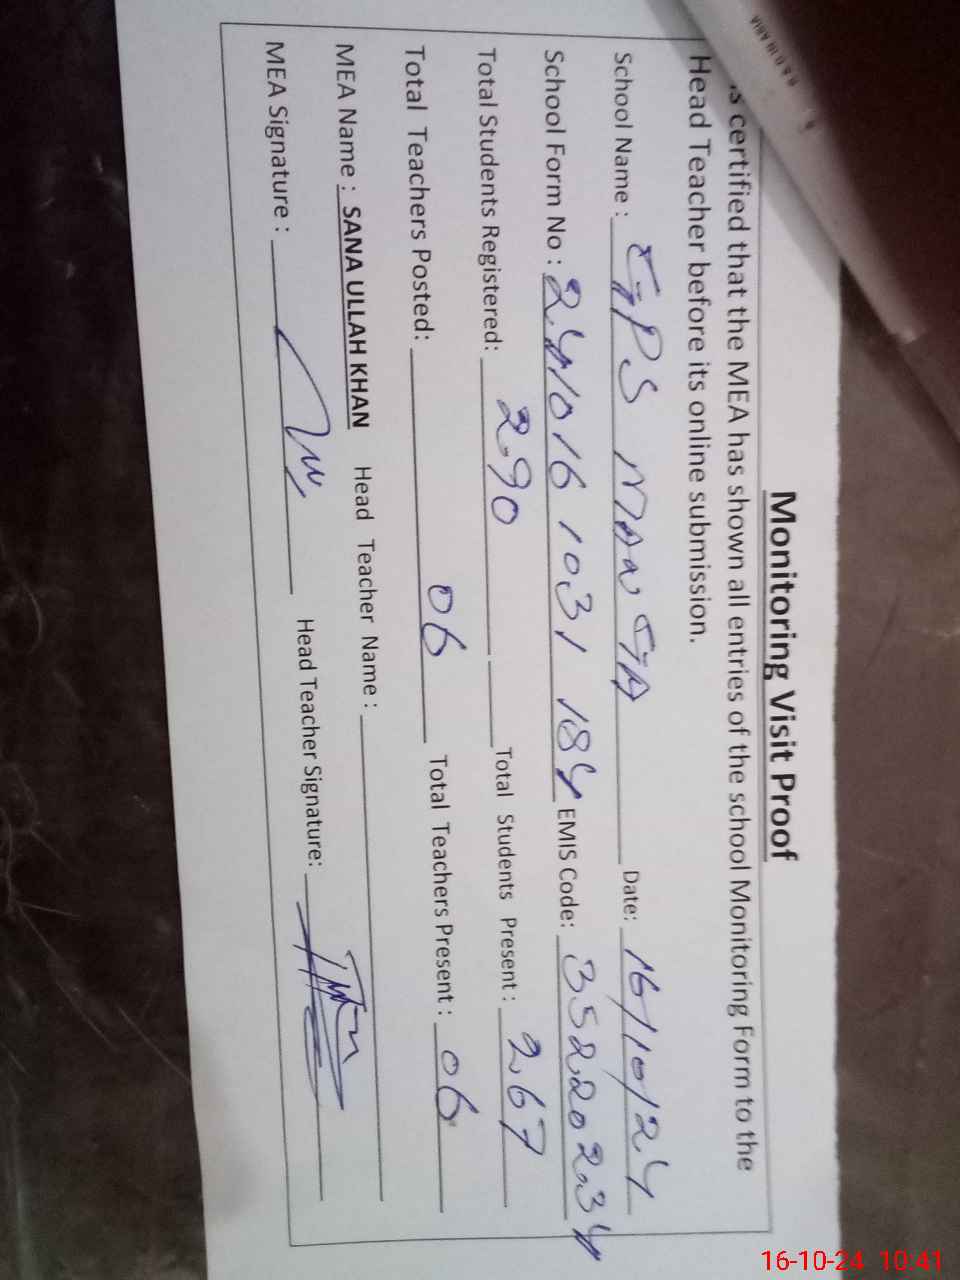 Monitoring Visit Proof
is certified that the MEA has shown all entries of the school Monitoring Form to the
Head Teacher before its online submission.
School Name : GPS Date: 16/10/24
School Form No : 2410161031 184 EMIS Code: 35220234
Total Students Registered: 290 Total Students Present : 267
Total Teachers Posted: 06 Total Teachers Present : 06
MEA Name : SANA ULLAH KHAN Head Teacher Name :
MEA Signature : Head Teacher Signature:
16-10-24 10:41